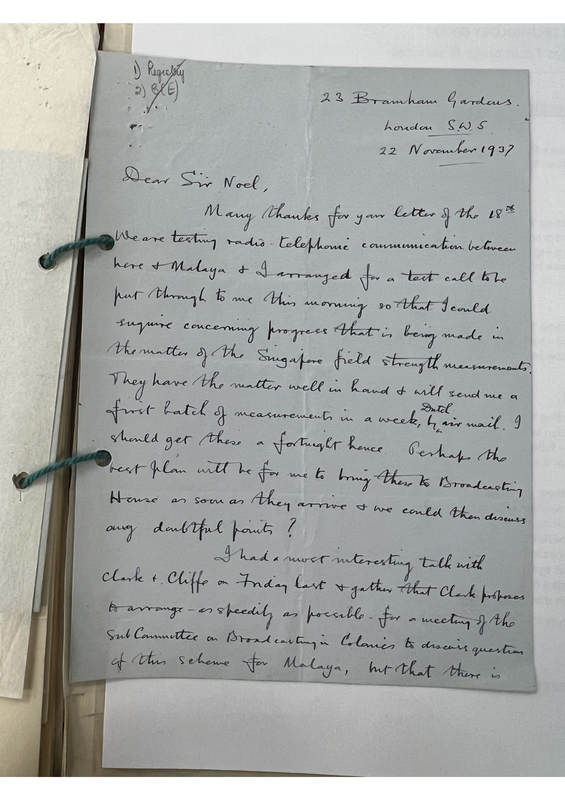 1) Registry
2) C(E)
23 Bramham Gardens.
London S.W.5.
22 November 1937
Dear Sir Noel,
Many thanks for your letter of the 18th
We are testing radio-telephonic communication between
here & Malaya & I arranged for a test call to be
put through to me this morning so that I could
enquire concerning progress that is being made in
the matter of the Singapore field strength measurements.
They have the matter well in hand & will send me a
first batch of measurements in a week, by Dutch air mail. I
should get these a fortnight hence. Perhaps the
best plan will be for me to bring these to Broadcasting
House as soon as they arrive & we could then discuss
any doubtful points?
I had a most interesting talk with
Clark & Cliffe on Friday last & gather that Clark proposes
to arrange - as speedily as possible - for a meeting of the
Sub Committee on Broadcasting in Colonies to discuss question
of this scheme for Malaya, but that there is